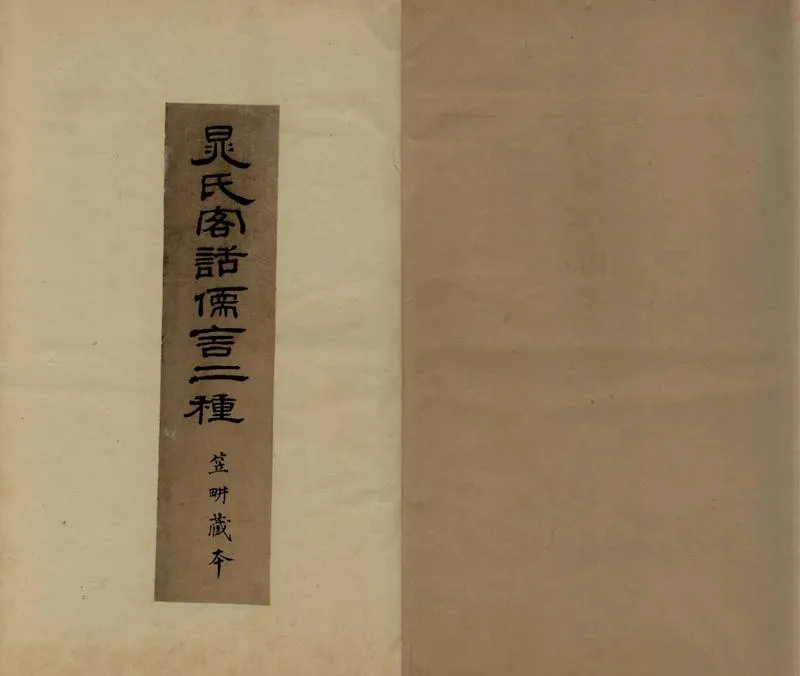 晁氏客話儒言二種
笠畊藏本